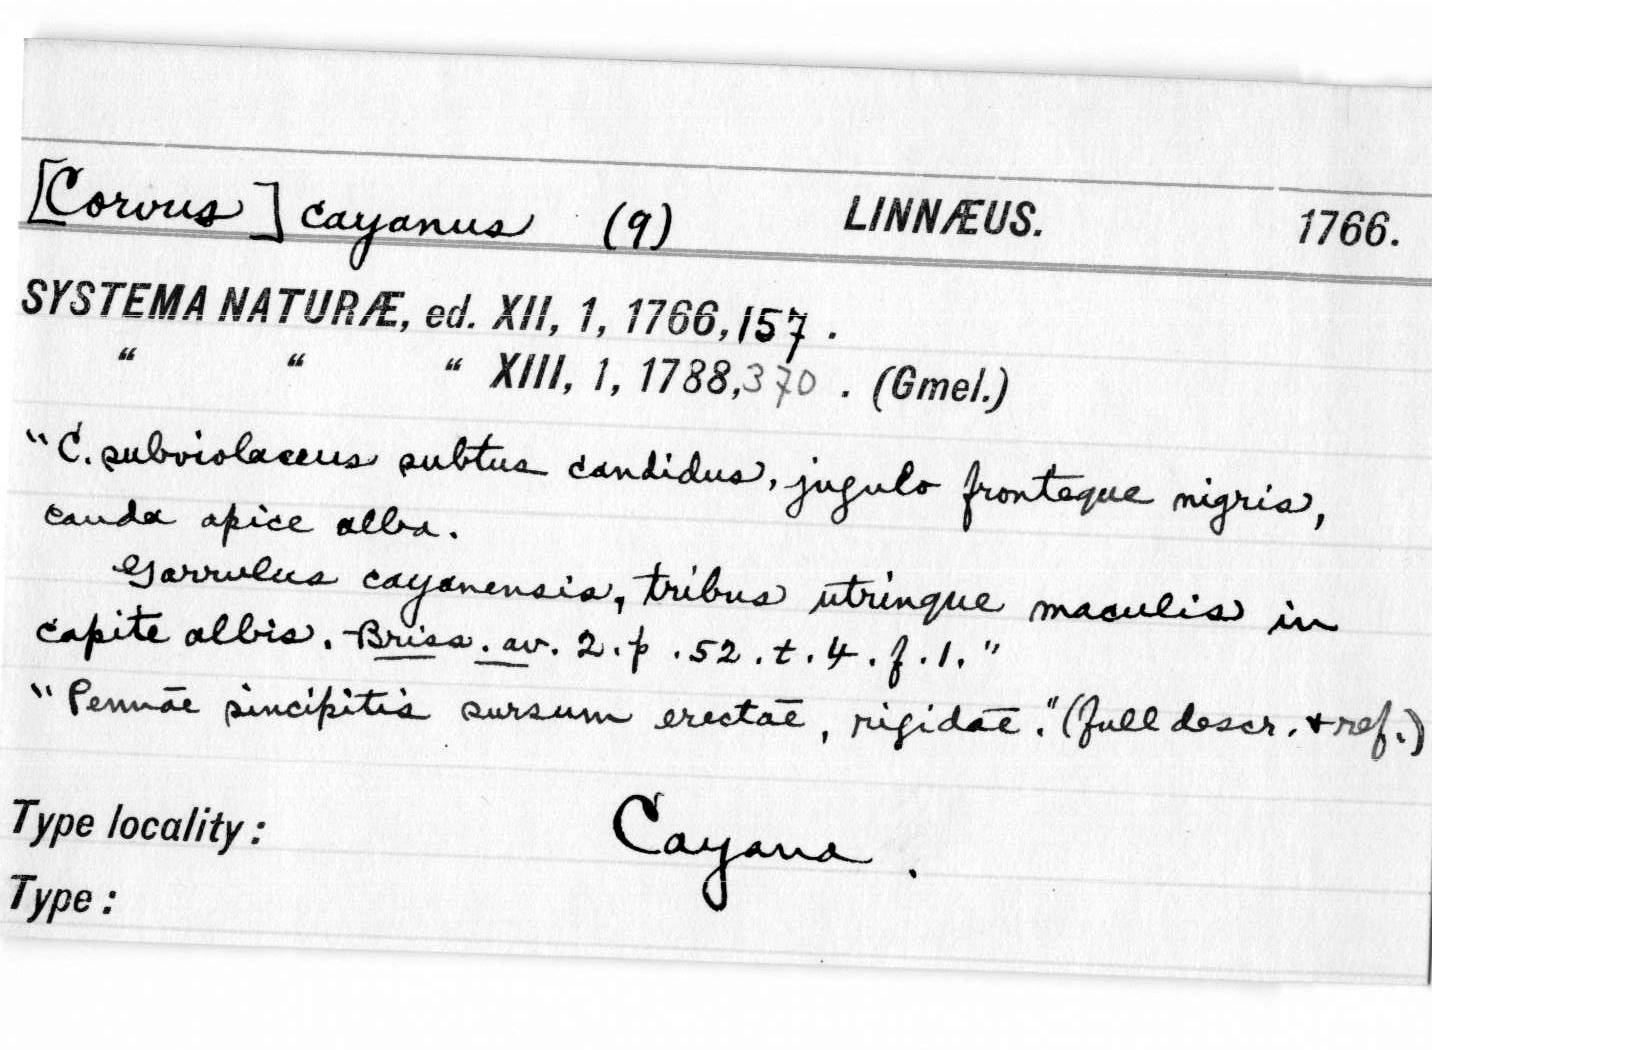 [Corvus] cayanus (9) LINNÆUS. 1766.
SYSTEMA NATURÆ, ed. XII, 1, 1766, 157.
“ “ “ XIII, 1, 1788, 370. (Gmel.)
"C. subviolaceus subtus candidus, jugulo fronteque nigris,
cauda apice alba.
Garrulus cayanensis, tribus utrinque maculis in
capite albis. Briss. av. 2. p. 52. t. 4. f. 1."
"Pennāe sincipitis sursum erectāe, rigidāe." (full descr. + ref.)
Type locality: Cayana.
Type: